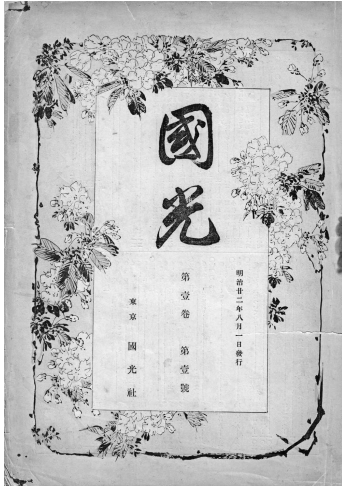 國光
明治廿二年八月一日發行
第壹卷　第壹號
東京　國光社